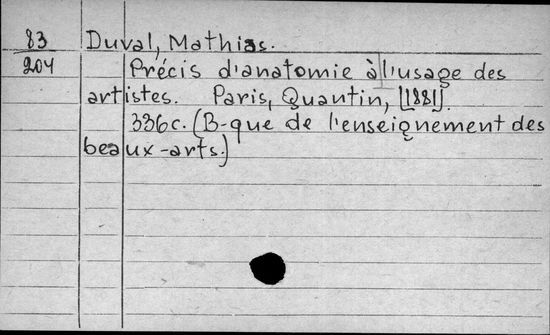 83
204
Duval, Mathias.
Précis d'anatomie à l'usage des
artistes. Paris, Quantin, [1881].
336c. (B-que de l'enseignement des
beaux-arts.)